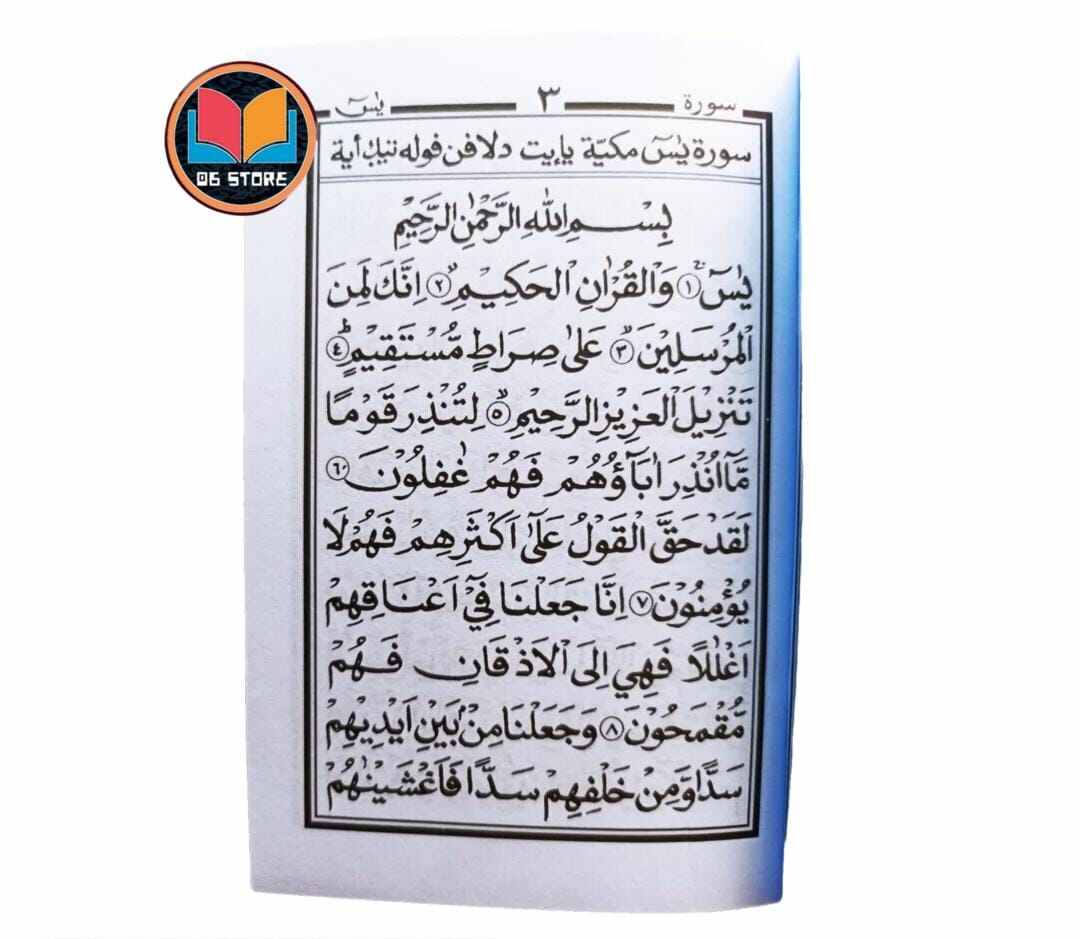 06 STORE
سورة ٣ يٰسٓ
سورة يٰسٓ مكيّة يإيت دلافن فوله تيݢ أية
بِسْــمِ اللّٰهِ الرَّحْمٰنِ الرَّحِيْمِ
يٰسٓ ۚ ١ وَالْقُرْاٰنِ الْحَكِيْمِۙ ٢ اِنَّكَ لَمِنَ
الْمُرْسَلِيْنَۙ ٣ عَلٰى صِرَاطٍ مُّسْتَقِيْمٍۗ ٤
تَنْزِيْلَ الْعَزِيْزِ الرَّحِيْمِۙ ٥ لِتُنْذِرَ قَوْمًا
مَّآ اُنْذِرَ اٰبَاۤؤُهُمْ فَهُمْ غٰفِلُوْنَ ٦
لَقَدْ حَقَّ الْقَوْلُ عَلٰٓى اَكْثَرِهِمْ فَهُمْ لَا
يُؤْمِنُوْنَ ٧ اِنَّا جَعَلْنَا فِيْٓ اَعْنَاقِهِمْ
اَغْلٰلًا فَهِيَ اِلَى الْاَذْقَانِ فَهُمْ
مُّقْمَحُوْنَ ٨ وَجَعَلْنَا مِنْۢ بَيْنِ اَيْدِيْهِمْ
سَدًّا وَّمِنْ خَلْفِهِمْ سَدًّا فَاَغْشَيْنٰهُمْ